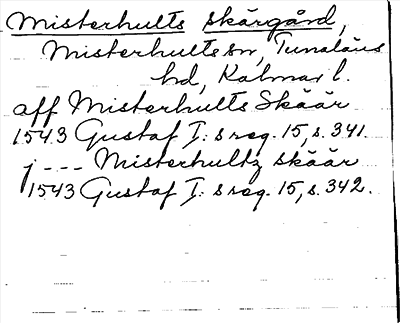 Misterhults skärgård,
Misterhults sn, Tunaläns
hd, Kalmar l.
aff Misterhults Skäär
1543 Gustaf I:s reg. 15, s. 341.
j --- Misterhultz skäär
1543 Gustaf I:s reg. 15, s. 342.